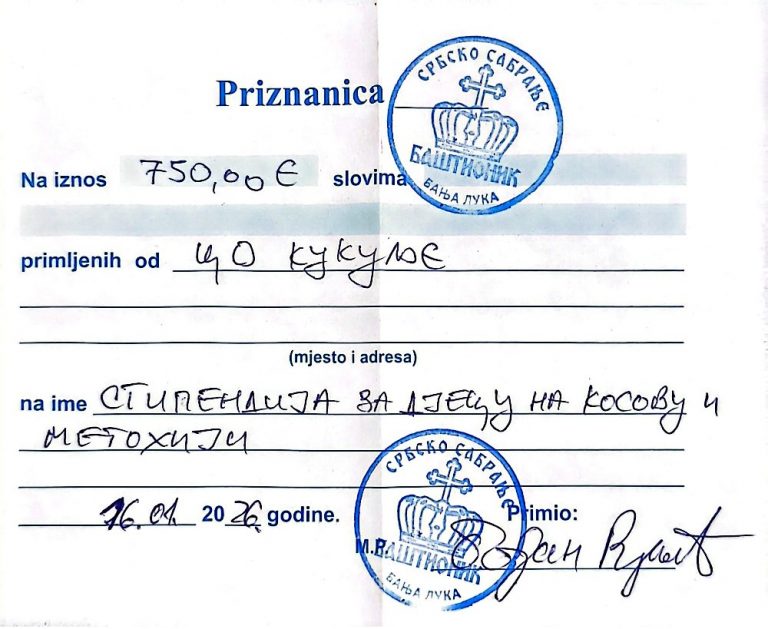 Priznanica
СРБСКО САБРАЊЕ
БАШТИОНИК
БАЊА ЛУКА
Na iznos 750,00 € slovima
primljenih od ЦО КУКУЉЕ
(mjesto i adresa)
na ime СТИПЕНДИЈА ЗА ДЈЕЦУ НА КОСОВУ И
МЕТОХИЈИ
СРБСКО САБРАЊЕ
16.01. 2026. godine. Primio:
М.П.
БАШТИОНИК
БАЊА ЛУКА